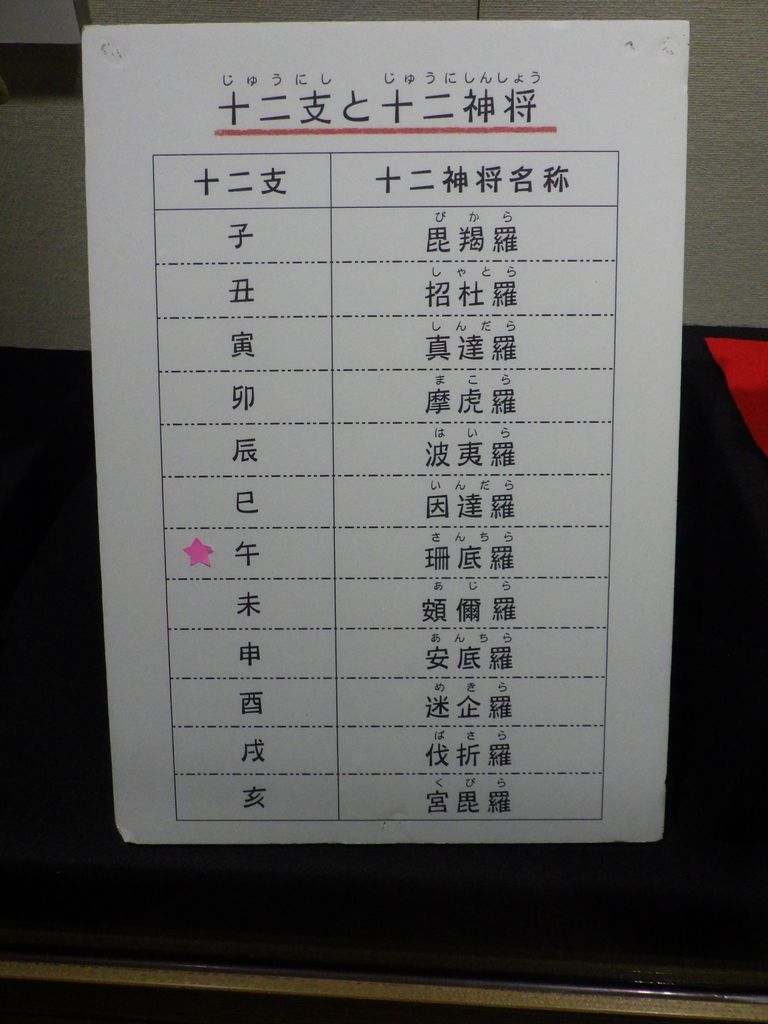 じゅうにし じゅうにしんしょう
十二支と十二神将
十二支 十二神将名称
びから
子 毘羯羅
しゃとら
丑 招杜羅
しんだら
寅 真達羅
まこら
卯 摩虎羅
はいら
辰 波夷羅
いんだら
巳 因達羅
さんちら
午 珊底羅
あじら
未 頞儞羅
あんちら
申 安底羅
めきら
酉 迷企羅
ばさら
戌 伐折羅
くびら
亥 宮毘羅